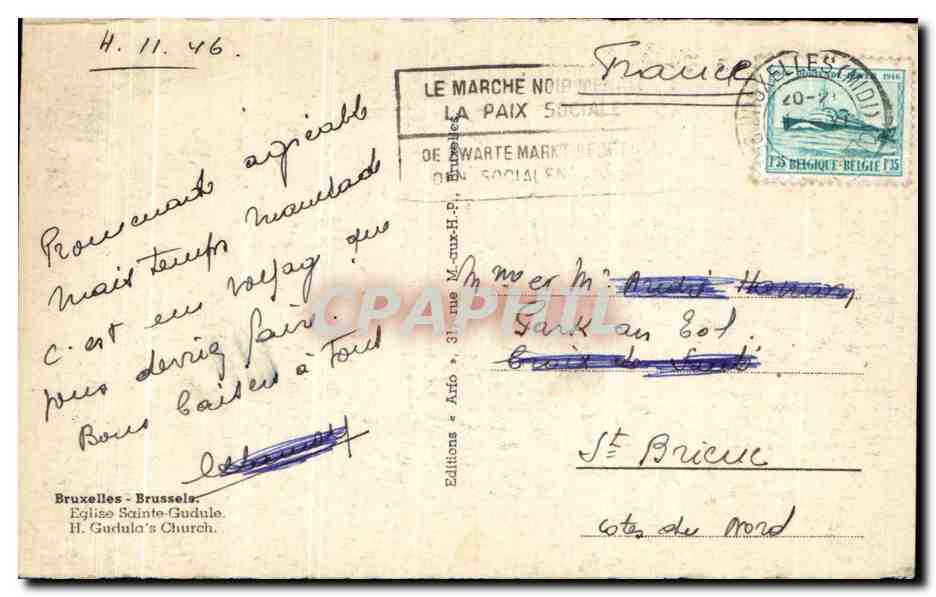 4.11.46.
France
LE MARCHE NOIR
LA PAIX SOCIALE
DE ZWARTE MARKT
DEN SOCIALEN
BRUXELLES (MIDI)
20-2
1946
1F35 BELGIQUE-BELGIË 1F35
Promenade agréable
mais temps maussade
c'est un voyag que
vous devriez faire.
Bons baisers à tous
Editions « Arfo », 31, rue M.-aux-H.-P., Bruxelles.
CPAPHIL
Mme et Mr André
St Brieuc
Cotes du Nord
Bruxelles - Brussels.
Eglise Sainte-Gudule.
H. Gudula's Church.